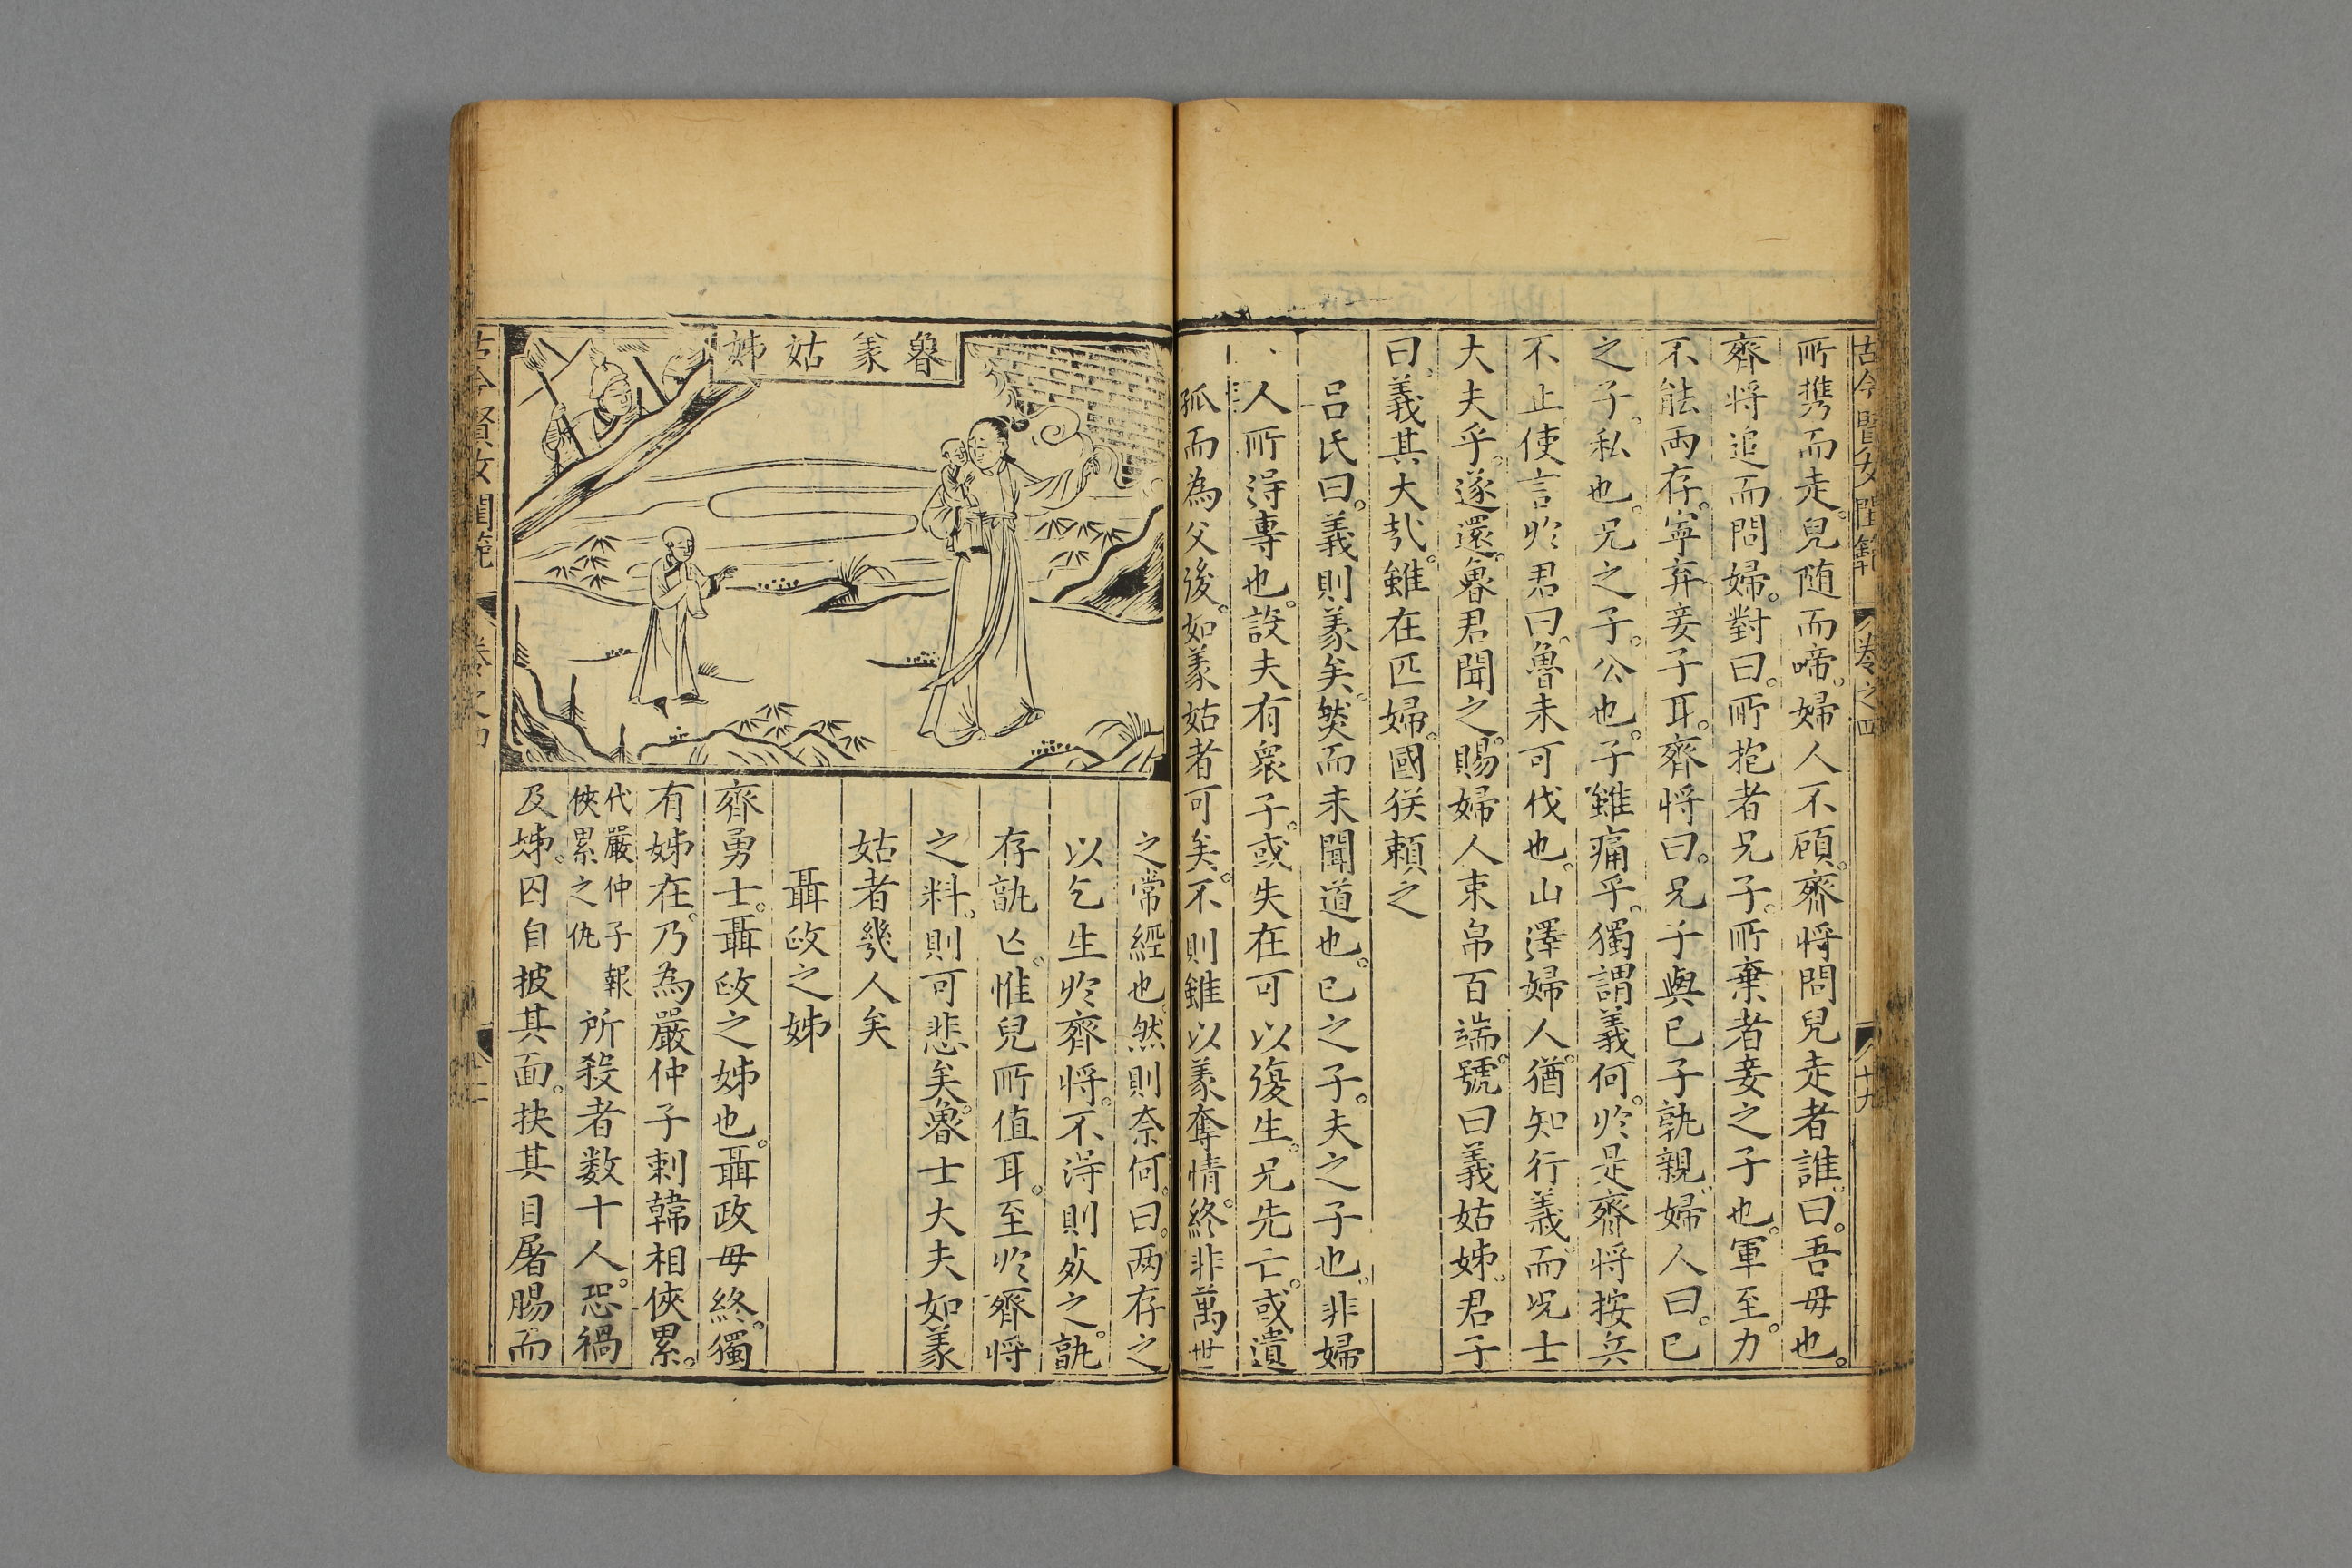 古今賢女閨範
卷之四
十九
所攜而走。兒随而啼。婦人不顧。齊將問兒走者誰。曰。吾母也。
齊將追而問婦。對曰。所抱者兄子。所棄者妾之子也。軍至。力
不能兩存。寧弃妾子耳。齊將曰。兄子與己子孰親。婦人曰。己
之子。私也。兄之子。公也。子雖痛乎。獨謂義何。於是齊將按兵
不止。使言於君曰。魯未可伐也。山澤婦人。猶知行義。而况士
大夫乎。遂還。魯君聞之。賜婦人束帛百端。號曰義姑姊。君子
曰。義其大哉。雖在匹婦。國猶頼之
呂氏曰。義則義矣。然而未聞道也。己之子。夫之子也。非婦
人所得專也。設夫有衆子。或失在可以復生。兄先亡。或遺
孤而為父後。如義姑者可矣。不則雖以義奪情。終非萬世
魯義姑姊
之常經也。然則奈何。曰。两存之
以乞生於齊將。不得則死之。孰
存孰亡。惟兒所值耳。至於齊將
之料。則可悲矣。魯士大夫如義
姑者幾人矣
聶政之姊
齊勇士。聶政之姊也。聶政母終。獨
有姊在。乃為嚴仲子刺韓相俠累。
代嚴仲子報
俠累之仇
所殺者数十人。恐禍
及姊。因自披其面。抉其目屠腸而
古今賢女閨範
卷之四